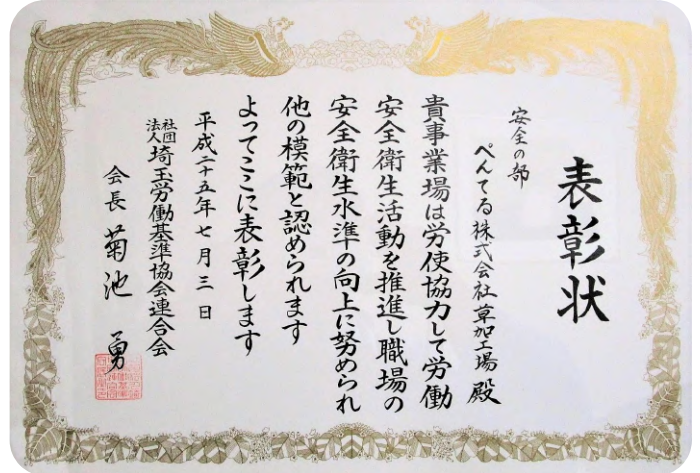 表彰状
安全の部
ぺんてる株式会社草加工場 殿
貴事業場は労使協力して労働
安全衛生活動を推進し職場の
安全衛生水準の向上に努められ
他の模範と認められます
よってここに表彰します
平成二十五年七月三日
社団法人 埼玉労働基準協会連合会
会長 菊池 勇